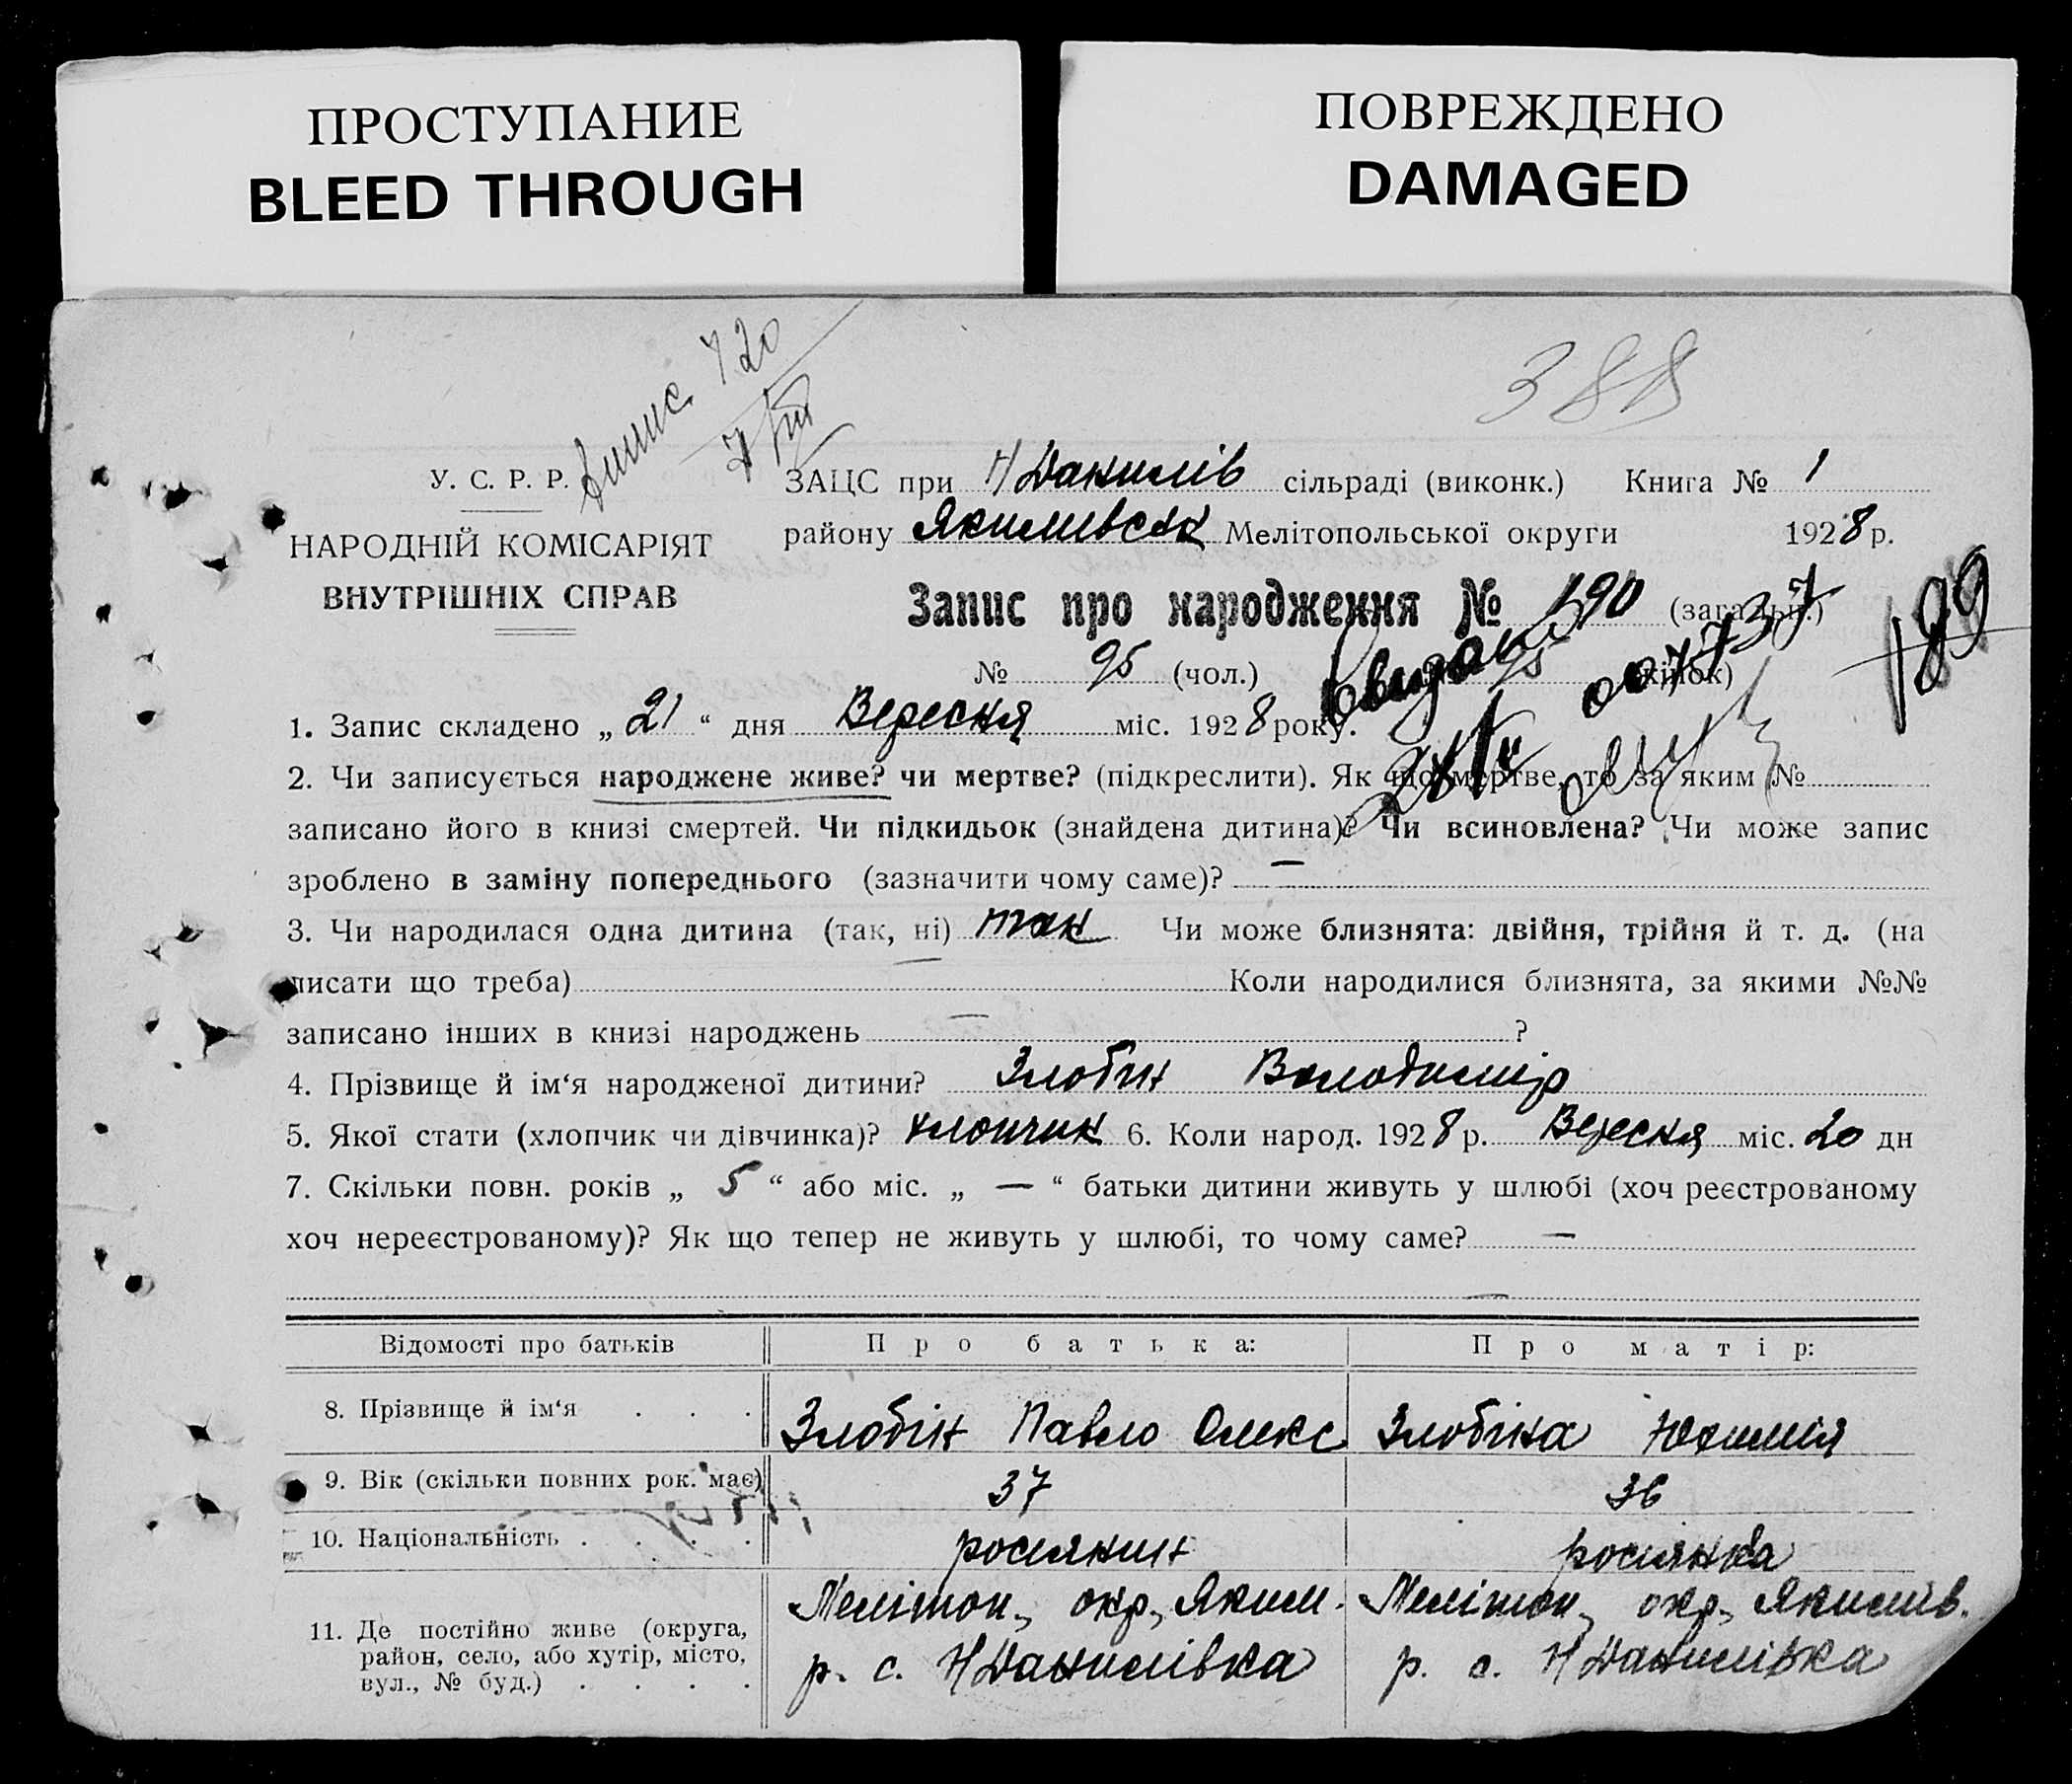 ПРОСТУПАНИЕ
BLEED THROUGH
ПОВРЕЖДЕНО
DAMAGED
388
720
У. С. Р. Р.
НАРОДНІЙ КОМІСАРІЯТ
ВНУТРІШНІХ СПРАВ
ЗАЦС при Н Данилів сільраді (виконк.) Книга № 1
району Якимівськ Мелітопольської округи 1928 р.
Запис про народження № 190 (загальн.)
189
№ 95 (чол.) 95 (жінок)
1. Запис складено „ 21 “ дня Вересня міс. 1928 року.
2. Чи записується народжене живе? чи мертве? (підкреслити). Як що мертве, то за яким №
записано його в книзі смертей. Чи підкидьок (знайдена дитина)? Чи всиновлена? Чи може запис
зроблено в заміну попереднього (зазначити чому саме)? —
3. Чи народилася одна дитина (так, ні) так Чи може близнята: двійня, трійня й т. д. (на
писати що треба) — Коли народилися близнята, за якими №№
записано інших в книзі народжень — ?
4. Прізвище й ім‘я народженої дитини? Злобін Володимір
5. Якої стати (хлопчик чи дівчинка)? хлопчик 6. Коли народ. 1928 р. Вересня міс. 20 дн
7. Скільки повн. років „ 5 “ або міс. „ — “ батьки дитини живуть у шлюбі (хоч реєстрованому
хоч нереєстрованому)? Як що тепер не живуть у шлюбі, то чому саме? —
Відомості про батьків Про батька: Про матір:
8. Прізвище й ім‘я . . . Злобін Павло Олекс Злобіна Юхимія
9. Вік (скільки повних рок. має) 37 36
10. Національність . . . . росіянин росіянка
11. Де постійно живе (округа, район, село, або хутір, місто, вул., № буд.) . . . .
Мелітоп. окр., Яким.
р. с. Н Данилівка
Мелітоп. окр., Якимів.
р. с. Н Данилівка